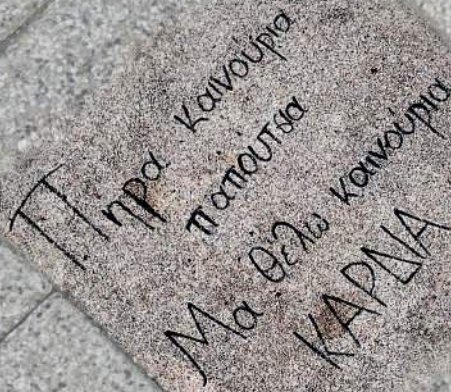 Πηρα καινούρια
παπούτσια
Μα θέλω καινούρια
ΚΑΡΔΙΑ